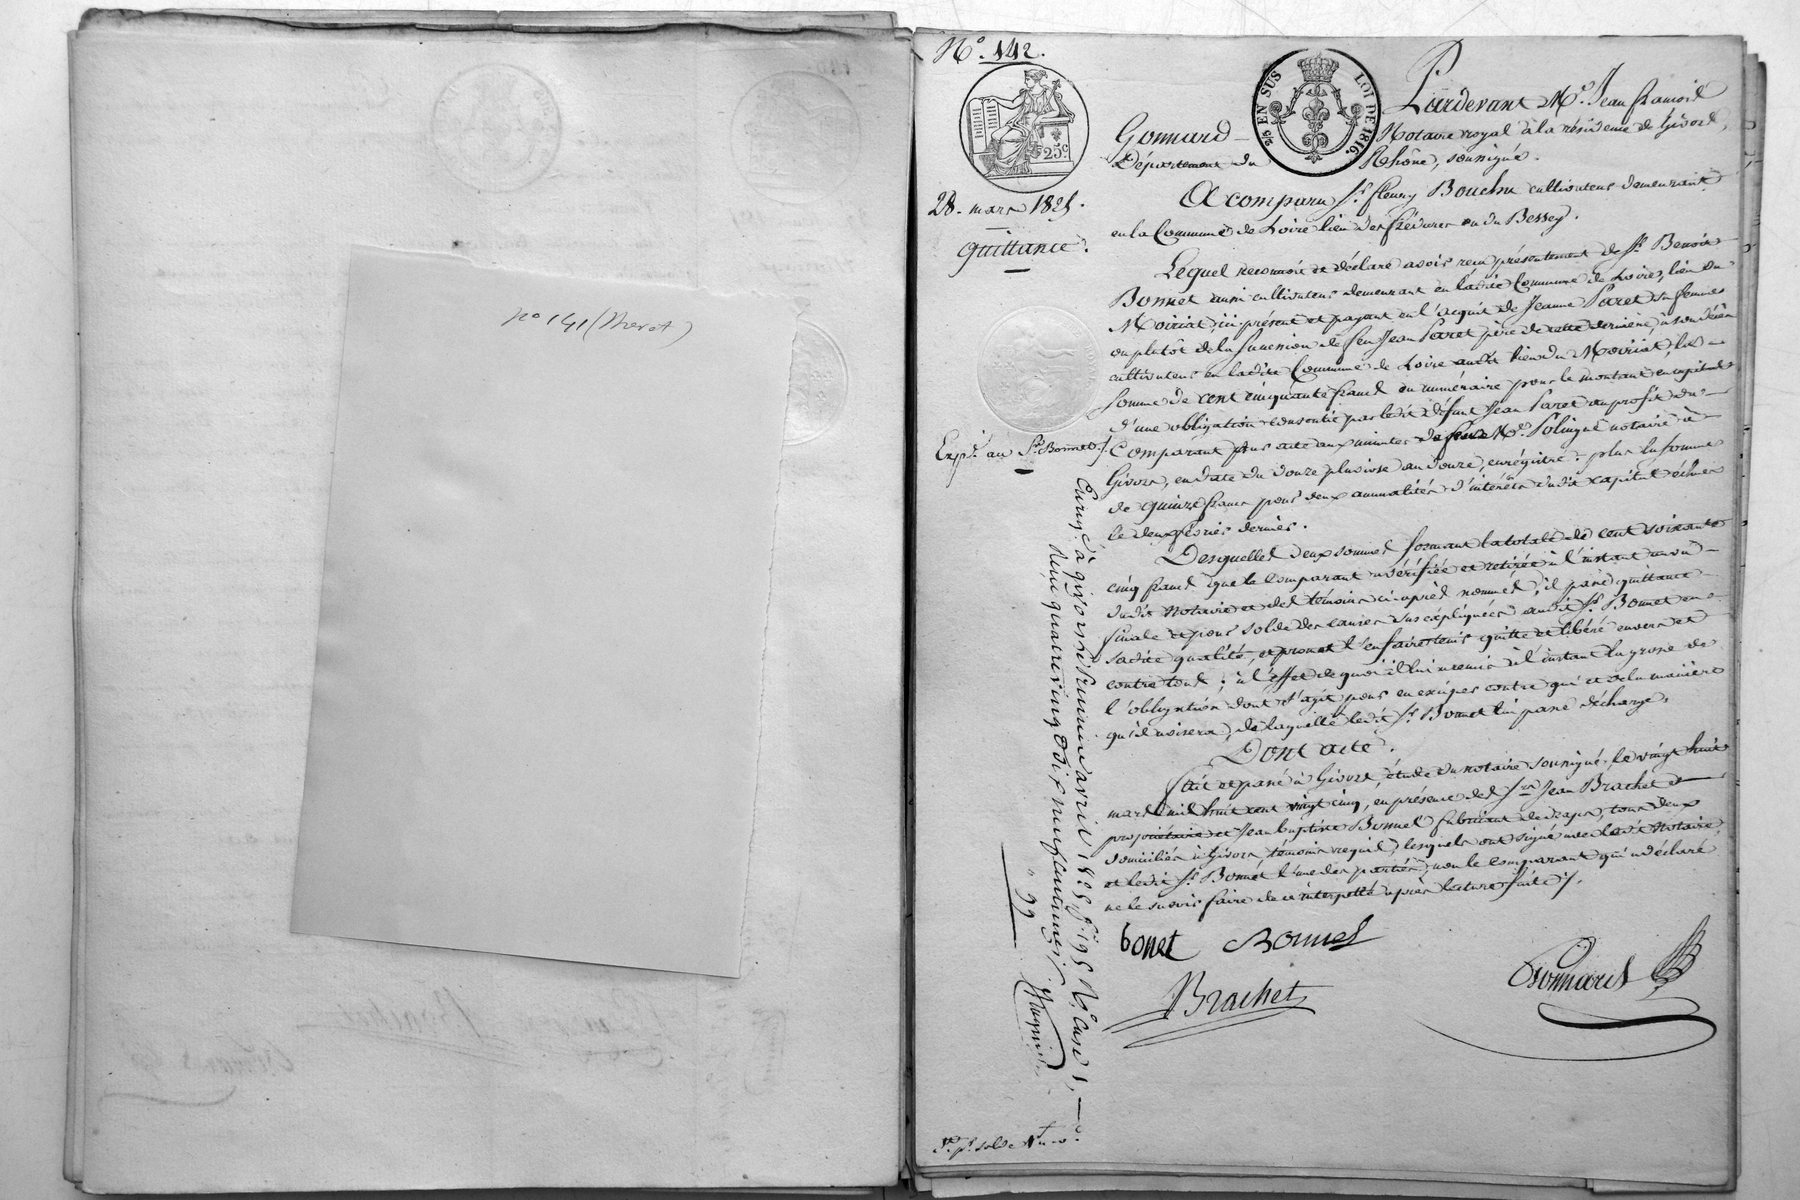 no 141 (Meret)
N.o 142.
2/5 EN SUS LOI DE 1816.
25c
28. mars 1825.
quittance.
Exp.n au Sr. Bonnet
Pardevant Me. Jean françois
Gonnard Notaire royal à la résidence de Givors,
Département du Rhône, soussigné.
A comparu Sr. fleury Bouchu cultivateur demeurant
en la Commune de Loire lieu des frédures ou du Bessey.
Lequel reconnoit et déclare avoir reçu présentement de Sr. Benoit
Bonnet aussi cultivateur demeurant en ladite Commune de Loire, lieu du
Moiriat, ici présent et payant en l'acquit de Jeanne Paret sa femme
ou plutôt de la succession de feu Jean Paret père de cette dernière, à son décès
cultivateur en ladite Commune de Loire audit lieu du Moiriat, la
somme de cent cinquante francs en numéraire pour le montant en capital
d'une obligation consentie par ledit défunt Jean Paret au profit du
Comparant par acte aux minutes de feu Me. Polingue notaire à
Givors, en date du douze pluviose an douze, enrégistré. plus la somme
de quinze francs pour deux annualités d'intérêts dudit capital échues
le deux février dernier.
Desquelles deux sommes formant la totale de cent soixante
cinq francs que le comparant a vérifiée et retirée à l'instant au vu
dudit Notaire et des témoins ci-après nommés, il passe quittance
finale et pour solde des causes sus expliquées audit Sr. Bonnet en
sadite qualité, et promet l'en faire tenir quitte et libéré envers et
contre tous ; à l'effet de quoi il lui a remis à l'instant la grosse de
l'obligation dont s'agit pour en exciper contre qui et de la manière
qu'il avisera, de laquelle ledit Sr. Bonnet lui passe décharge.
Dont acte.
fait et passé à Givors, étude du notaire soussigné, le vingt huit
mars mil huit cent vingt cinq, en présence des Srs. Jean Brachet
propriétaire et Jean Baptiste Bonnel fabricant de draps, tous deux
domiciliés à Givors, témoins requis, lesquels ont signé avec ledit Notaire,
et ledit Sr. Bonnet l'une des parties, non le comparant qui a déclaré
ne le savoir faire de ce interpellé après lecture faite ./.
bonet Bonnel
Brachet
Gonnard
Enreg. à givors le premier avril 1825 f.o 195 R.o case 1,
Reçu quatre vingt dix neuf centimes
99